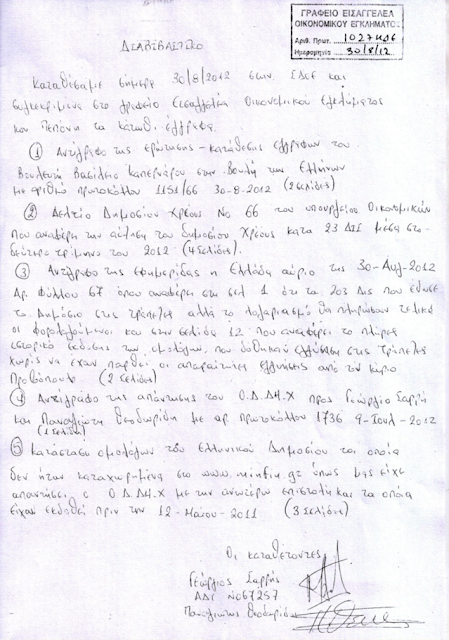 ΓΡΑΦΕΙΟ ΕΙΣΑΓΓΕΛΕΑ
ΟΙΚΟΝΟΜΙΚΟΥ ΕΓΚΛΗΜΑΤΟΣ
Αριθ. Πρωτ. 1027
Ημερομηνία 30/8/12
ΔΙΑΒΙΒΑΣΤΙΚΟ
Καταθέσαμε σήμερα 30/8/2012 στην ΣΔΟΕ και
συγκεκριμένα στο γραφείο Εισαγγελέα Οικονομικού Εγκλήματος
κου Πεπόνη τα κάτωθι έγγραφα.
① Αντίγραφο της ερώτησης - κατάθεσης εγγράφων του
Βουλευτή Βασίλειο Καπερνάρου στην Βουλή των Ελλήνων
με αριθμό πρωτοκόλλου 1151/66 30-8-2012 (2 σελίδες)
② Δελτίο Δημοσίου Χρέους Νο 66 του υπουργείου Οικονομικών
που αναφέρει την αύξηση του δημοσίου χρέους κατά 23 ΔΙΣ μέσα στο
δεύτερο τρίμηνο του 2012 (4 Σελίδες).
③ Αντίγραφο της εφημερίδας η Ελλάδα αύριο της 30-Αυγ-2012
Αρ. Φύλλου 67 όπου αναφέρει στη σελ 1 ότι τα 203 Δις που έδωσε
το Δημόσιο στις τράπεζες αλλά το λογαριασμό θα πληρώσουν τελικά
οι φορολογούμενοι και στην σελίδα 12 που αναφέρει το πλήρες
ιστορικό έκδοσης των ομολόγων, που δόθηκαν εγγύηση στις τράπεζες
χωρίς να έχουν παρθεί οι απαραίτητες εγγυήσεις από τον κύριο
Προβόπουλο (2 Σελίδες)
④ Αντίγραφο της απάντησης του Ο.Δ.ΔΗ.Χ προς Γεώργιο Σαρρή
και Παναγιώτη Θεοδωρίδη με αρ. πρωτοκόλλου 1736 9-Ιουλ-2012
(1 Σελίδα)
⑤ Κατάσταση ομολόγων του Ελληνικού Δημοσίου τα οποία
δεν ήταν καταχωρημένα στο www.minfin.gr όπως μας είχε
απαντήσει ο Ο.Δ.ΔΗ.Χ με την ανωτέρω επιστολή και τα οποία
είχαν εκδοθεί πριν την 12-Μαΐου-2011 (3 Σελίδες)
Οι καταθέτοντες
Γεώργιος Σαρρής
ΑΔΤ Ν067257
Παναγιώτης Θεοδωρίδης